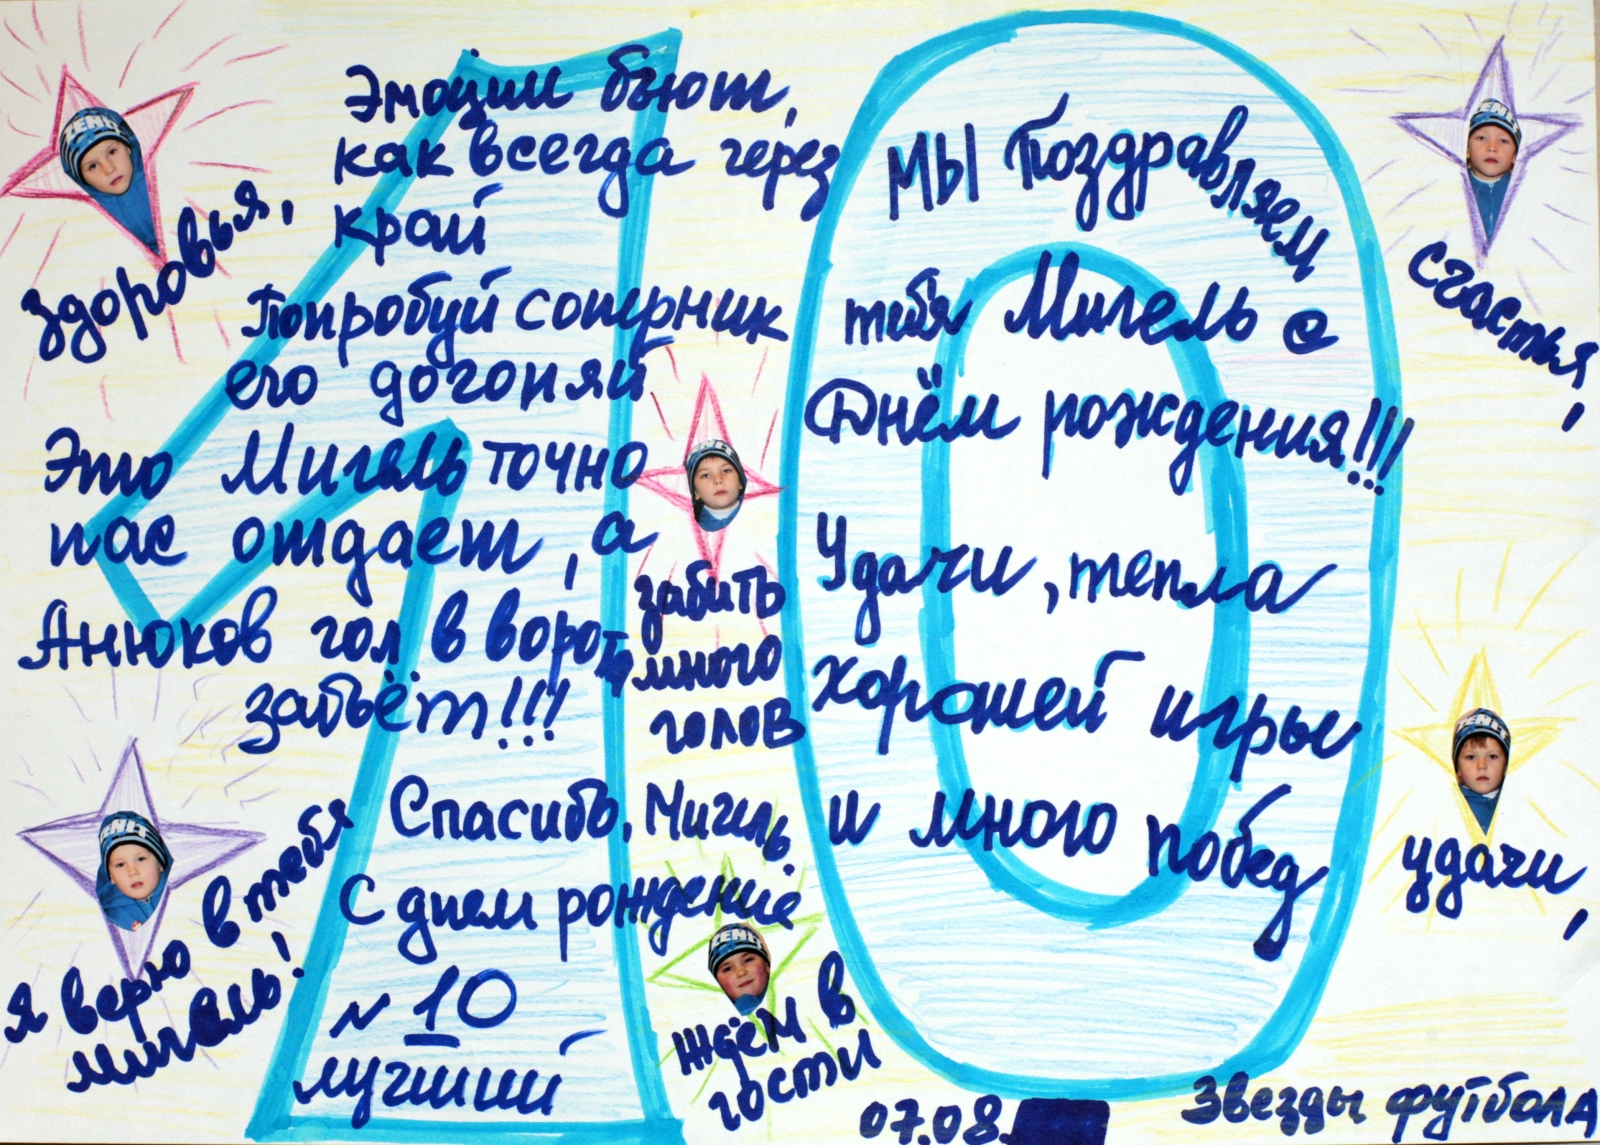 Эмоции бьют,
как всегда через
край
Попробуй соперник
его догоняй
Это Мигель точно
пас отдает, а
Анюков гол в ворота
забьёт!!!
Спасибо, Мигель.
С днем рождение
№ 10
лучший
МЫ Поздравляем
тебя Мигель с
Днём рождения!!!
Удачи, тепла
хорошей игры
и много побед
здоровья,
счастья,
забить
много
голов
удачи,
Я верю в тебя
Мигель!
Ждём в
гости
07.08.
Звезды футбола
ZENIT
ZENIT
ZENIT
ZENIT
ZENIT
ZENIT